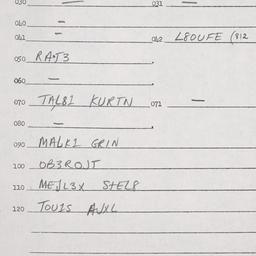 030 — 031 —
040 —
041 — 042 L8OUFE (812
050 RAT3
060 —
070 TAL81 KURTN 071 —
080 —
090 MALK1 GRIN
100 OB3ROJT
110 MEJL3X STEL8
120 TOU1S AJXL